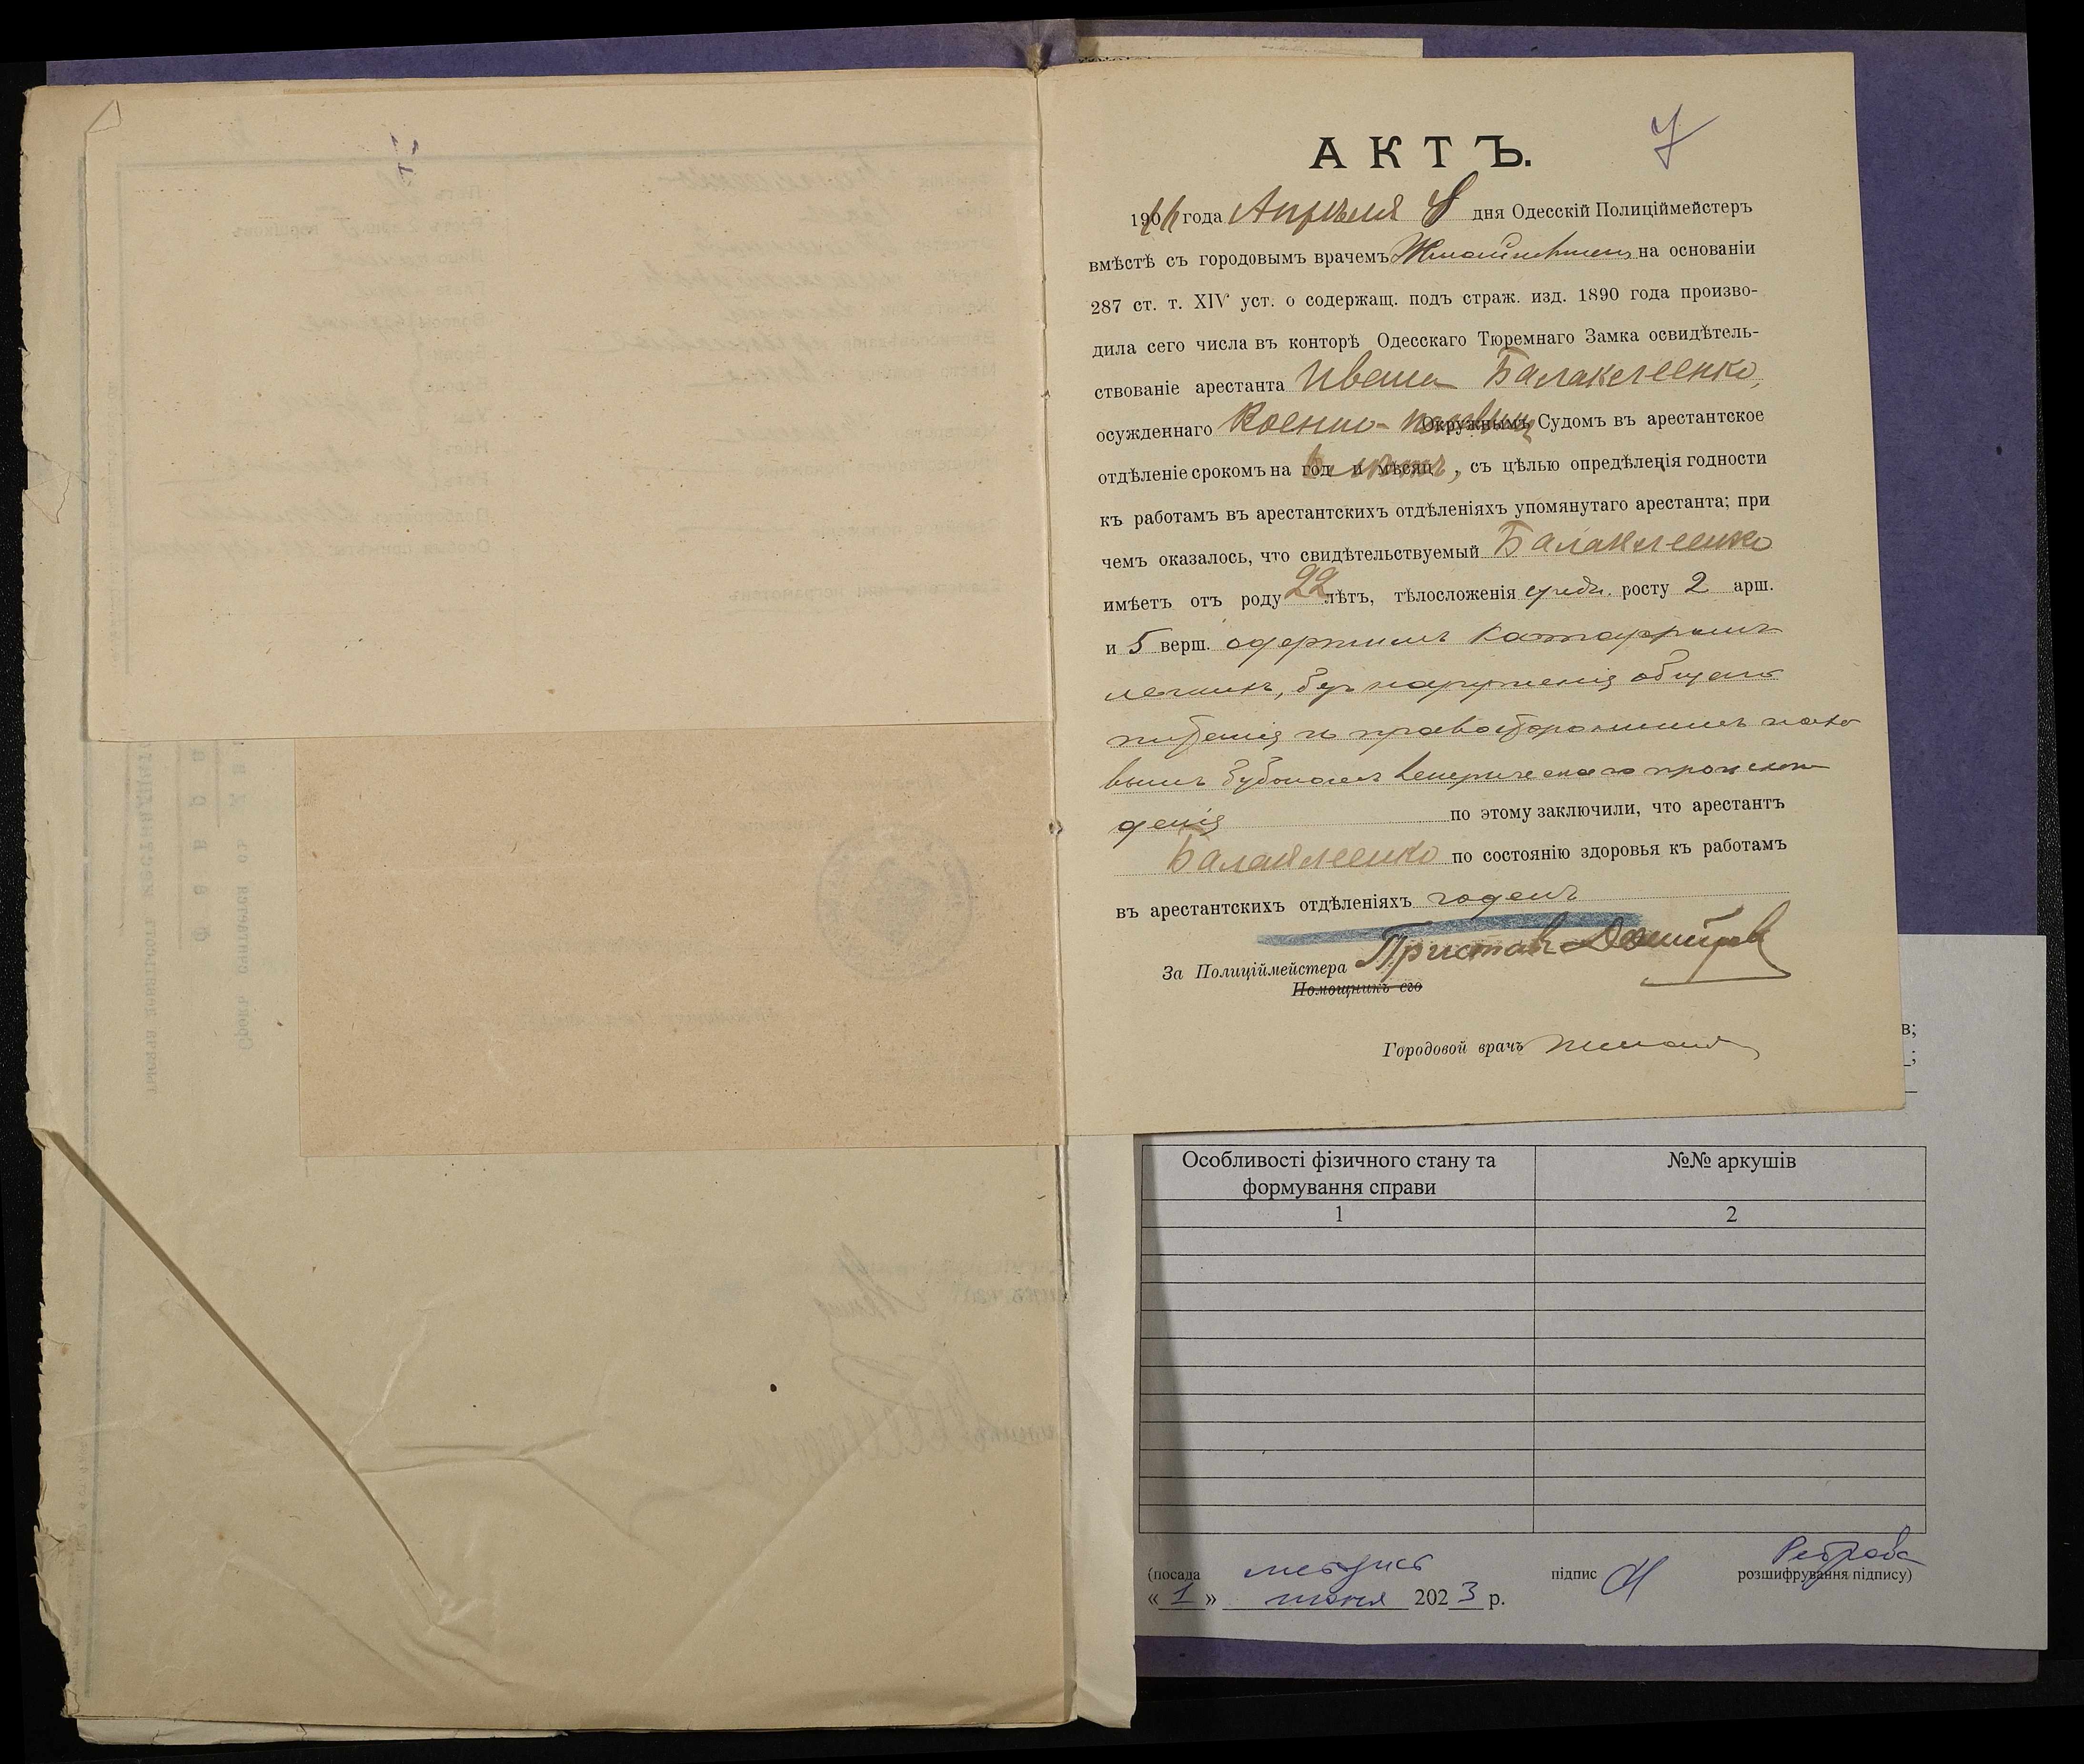 АКТЪ.
7
1911 года Апрѣля 8 дня Одесскій Полиціймейстеръ
вмѣстѣ съ городовымъ врачемъ на основаніи
287 ст. т. XIV уст. о содержащ. подъ страж. изд. 1890 года произво-
дила сего числа въ конторѣ Одесскаго Тюремнаго Замка освидѣтель-
ствованіе арестанта Ивана Балаклеенко,
осужденнаго Военно- Окружнымъ Судомъ въ арестантское
отдѣленіе срокомъ на год и мѣсяц, съ цѣлью опредѣленія годности
къ работамъ въ арестантскихъ отдѣленіяхъ упомянутаго арестанта; при
чемъ оказалось, что свидѣтельствуемый Балаклеенко
имѣетъ отъ роду 22 лѣтъ, тѣлосложенія средн. росту 2 арш.
и 5 верш. одержимъ катарромъ
легкихъ, безъ нарушенія общаго
питанія и правостороннимъ пахо
вымъ бубономъ венерическаго происхож
денія по этому заключили, что арестантъ
Балаклеенко по состоянію здоровья къ работамъ
въ арестантскихъ отдѣленіяхъ годенъ
За Полиціймейстера Приставъ
Помощникъ его
Городовой врачъ
в;
;
Особливості фізичного стану та формування справи
№№ аркушів
1
2
(посада
підпис
Реброва
розшифрування підпису)
« 1 » июня 2023 р.